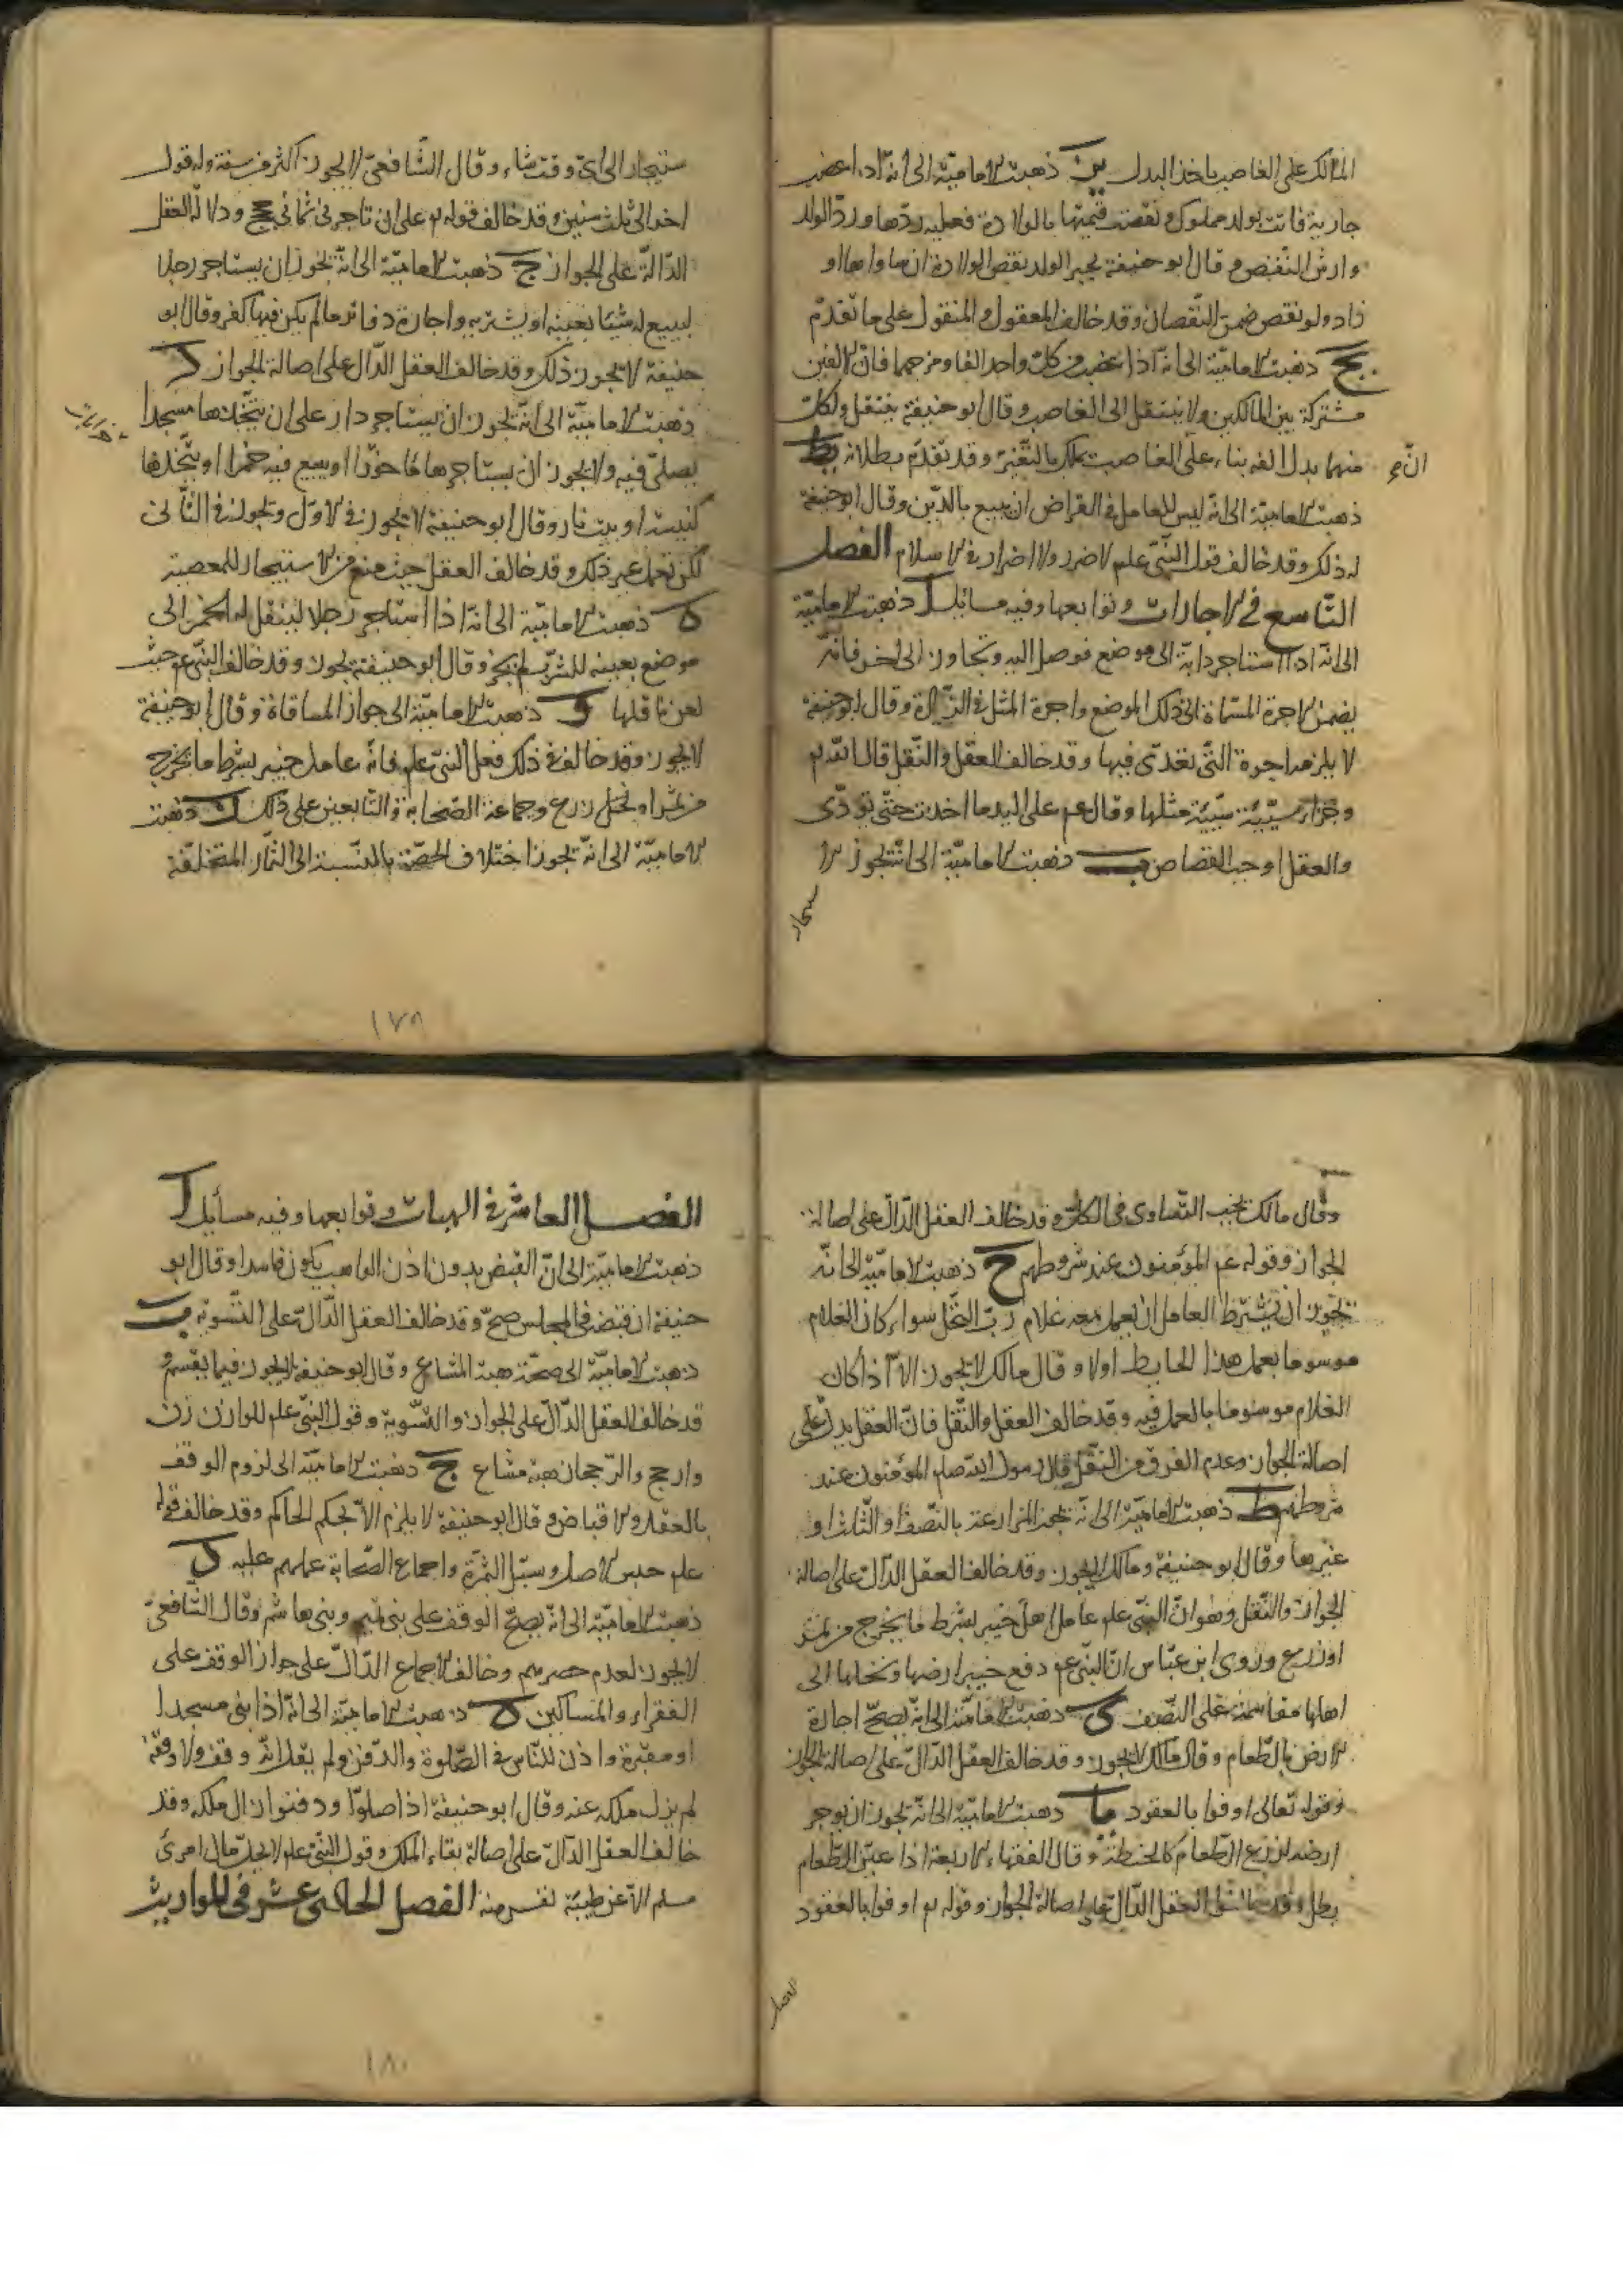 المالك على الغاصب باخذ البدل يز ذهبت الامامية الى انه اذا غصب
جارية فاتت بولد مملوك ونقصت قيمتها بالولادة فعليه ردها ورد الولد
وارش النقص وقال ابو حنيفة يجبر الولد نقص الولادة ان ساواها او
زاد ولو نقص ضمن النقصان وقد خالف المعقول والمنقول على ما تقدم
يح ذهبت الامامية الى انه اذا غصب من كل واحد الفا ومزجهما فان الالفين
مشتركة بين المالكين ولا ينتقل الى الغاصب وقال ابو حنيفة ينتقل ولكل
منهما بدل الفه بناء على الغاصب يملك بالتغير وقد تقدم بطلانه يط
ان
ذهبت الامامية الى انه ليس للعامل في القراض ان يبيع بالدين وقال ابو حنيفة
له ذلك وقد خالف قول النبي علم لا ضرر ولا اضرار في الاسلام الفصل
التاسع في الاجارات وتوابعها وفيه مسائل ا ذهبت الامامية
الى انه اذا استاجر دابة الى موضع فوصل اليه وتجاوز الى اخر فانه
يضمن الاجرة المسماة الى ذلك الموضع واجرة المثل في الزيادة وقال ابو حنيفة
لا يلزمه اجرة التي تعدى فيها وقد خالف العقل والنقل قال الله تع
وجزاء سيئة سيئة مثلها وقال عم على اليد ما اخذت حتى تودى
والعقل اوجب القصاص ب ذهبت الامامية الى انه يجوز الا
ستيجار
ستيجار الى اي وقت شاء وقال الشافعي لا يجوز اكثر من سنة وله قول
اخر الى ثلث سنين وقد خالف قوله تع على ان تاجرني ثماني حجج ودلالة العقل
الدالة على الجواز ج ذهبت الامامية الى انه يجوز ان يستاجر رجلا
ليبيع له شيئا بعينه او يشتريه واجارة دفاتر ما لم يكن فيها كفر وقال ابو
حنيفة لا يجوز ذلك وقد خالف العقل الدال على اصالة الجواز د
ذهبت الامامية الى انه يجوز ان يستاجر دار على ان يتخذها مسجدا
يصلي فيه ولا يجوز ان يستاجرها ماخوذا او يبيع فيه خمرا او يتخذها
كنيسة او بيت نار وقال ابو حنيفة لا يجوز في الاول ويجوز في الثاني
لكن يعمل غير ذلك وقد خالف العقل حيث منع من الاستيجار للمعصية
ه ذهبت الامامية الى انه اذا استاجر رجلا لينقل له الخمر الى
موضع بعينه للشرب لم يجز وقال ابو حنيفة يجوز وقد خالف النبي عم حيث
لعن ناقلها و ذهبت الامامية الى جواز المساقاة وقال ابو حنيفة
لا يجوز وقد خالف في ذلك فعل النبي علم فانه عامل خيبر بشرط ما يخرج
من ثمر او نخل زرع وجماعة الصحابة والتابعين على ذلك ز ذهبت
الامامية الى انه يجوز اختلاف الحصة بالنسبة الى الثمار المختلفة
١٧٩
وقال مالك يجب التساوى في الكل وقد خالف العقل الدال على اصالة
الجواز وقوله عم المؤمنون عند شروطهم ح ذهبت الامامية الى انه
يجوز ان يشترط العامل ان يعمل معه غلام رب النخل سواء كان الغلام
موسوما بعمل هذا الحايط اولا وقال مالك لا يجوز الا اذا كان
الغلام موسوما بالعمل فيه وقد خالف العقل والنقل فان العقل يدل على
اصالة الجواز وعدم الفرق من النقل قال رسول الله صلم المؤمنون عند
شروطهم ط ذهبت الامامية الى انه يجوز المزارعة بالنصف او الثلث او
غيرها وقال ابو حنيفة ومالك لا يجوز وقد خالف العقل الدال على اصالة
الجواز والنقل وهو ان النبي علم عامل اهل خيبر بشرط ما يخرج من ثمر
او زرع وروى ابن عباس ان النبي عم دفع خيبر ارضها ونخلها الى
اهلها مقاسمة على النصف ى ذهبت الامامية الى انه يصح اجارة
الارض بالطعام وقال مالك لا يجوز وقد خالف العقل الدال على اصالة الجواز
وقوله تعالى اوفوا بالعقود يا ذهبت الامامية الى انه يجوز ان يوجر
ارضه لزرع الطعام كالحنطة وقال الفقهاء الاربعة اذا عين الطعام
بطل وقد خالفوا العقل الدال على اصالة الجواز وقوله تع اوفوا بالعقود
الفصل
الفصل العاشر في الهبات وتوابعها وفيه مسائل ا
ذهبت الامامية الى ان القبض بدون اذن الواهب يكون فاسدا وقال ابو
حنيفة ان قبض في المجلس صح وقد خالف العقل الدال على التسوية ب
ذهبت الامامية الى صحة هبة المشاع وقال ابو حنيفة لا يجوز فيما يقسم و
قد خالف العقل الدال على الجواز والتسوية وقول النبي علم للوازن زن
وارجح والرجحان هبة مشاع ج ذهبت الامامية الى لزوم الوقف
بالعقد والاقباض وقال ابو حنيفة لا يلزم الا بحكم الحاكم وقد خالف قوله
علم حبس الاصل وسبل الثمرة واجماع الصحابة عليه د
ذهبت الامامية الى انه يصح الوقف على بني تميم وبني هاشم وقال الشافعي
لا يجوز لعدم حصرهم وخالف الاجماع الدال على جواز الوقف على
الفقراء والمساكين ه ذهبت الامامية الى انه اذا بنى مسجدا
او مقبرة واذن للناس في الصلوة والدفن ولم يقل انه وقف ولا وقفته
لم يزل ملكه عنه وقال ابو حنيفة اذا صلوا ودفنوا زال ملكه وقد
خالف العقل الدال على اصالة بقاء الملك وقول النبي علم لا يحل مال امرئ
مسلم الا عن طيبة نفس منه الفصل الحادى عشر في المواريث
١٨٠